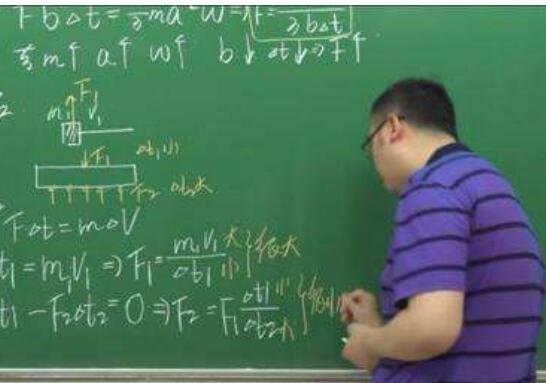 F b Δt = 1/3 ma²w ⇒ F = / 3bΔt
若 m↑ a↑ w↑ b↓ Δt↓ ⇒ F↑
F₁
m₁ V₁
F₁ Δt₁小
F₂ Δt₂大
FΔt = mΔV
t₁ = m₁V₁ ⇒ F₁ = m₁V₁大 / Δt₁小 } 很大
t₁ − F₂Δt₂ = 0 ⇒ F₂ = F₁ Δt₁小 / Δt₂大 } 很小